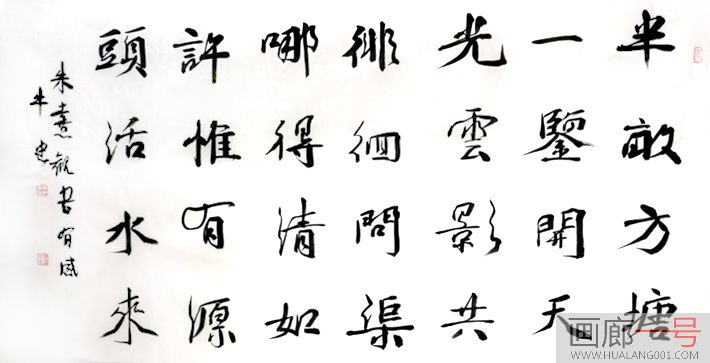 半畝方塘
一鑒開天
光雲影共
徘徊問渠
哪得清如
許惟有源
頭活水來
朱熹觀書有感
牛忠
画廊一号
WWW.HUALANG001.COM